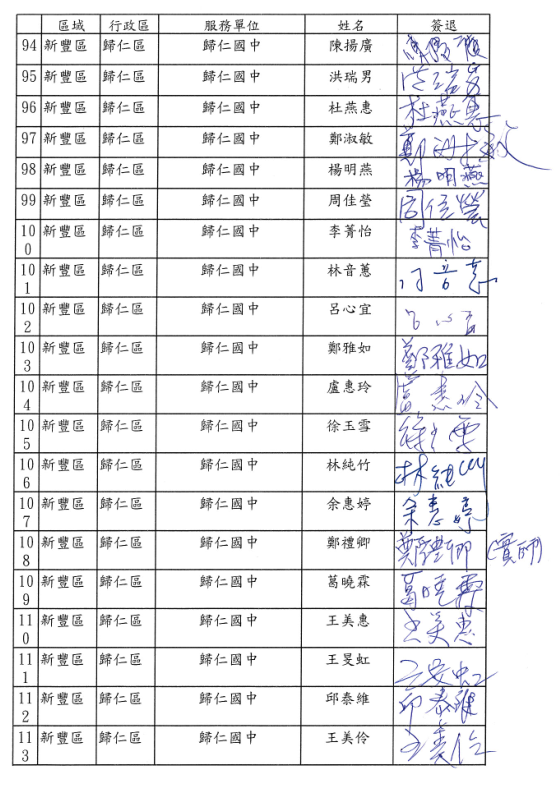 區域 行政區 服務單位 姓名 簽退
94 新豐區 歸仁區 歸仁國中 陳揚廣
95 新豐區 歸仁區 歸仁國中 洪瑞男 洪瑞男
96 新豐區 歸仁區 歸仁國中 杜燕惠 杜燕惠
97 新豐區 歸仁區 歸仁國中 鄭淑敏 鄭淑敏
98 新豐區 歸仁區 歸仁國中 楊明燕 楊明燕
99 新豐區 歸仁區 歸仁國中 周佳瑩 周佳瑩
100 新豐區 歸仁區 歸仁國中 李菁怡 李菁怡
101 新豐區 歸仁區 歸仁國中 林音蕙
102 新豐區 歸仁區 歸仁國中 呂心宜 呂心宜
103 新豐區 歸仁區 歸仁國中 鄭雅如 鄭雅如
104 新豐區 歸仁區 歸仁國中 盧惠玲 盧惠玲
105 新豐區 歸仁區 歸仁國中 徐玉雪
106 新豐區 歸仁區 歸仁國中 林純竹 林純竹
107 新豐區 歸仁區 歸仁國中 余惠婷 余惠婷
108 新豐區 歸仁區 歸仁國中 鄭禮卿 鄭禮卿 (實師)
109 新豐區 歸仁區 歸仁國中 葛曉霖 葛曉霖
110 新豐區 歸仁區 歸仁國中 王美惠 王美惠
111 新豐區 歸仁區 歸仁國中 王旻虹
112 新豐區 歸仁區 歸仁國中 邱泰維 邱泰維
113 新豐區 歸仁區 歸仁國中 王美伶 王美伶